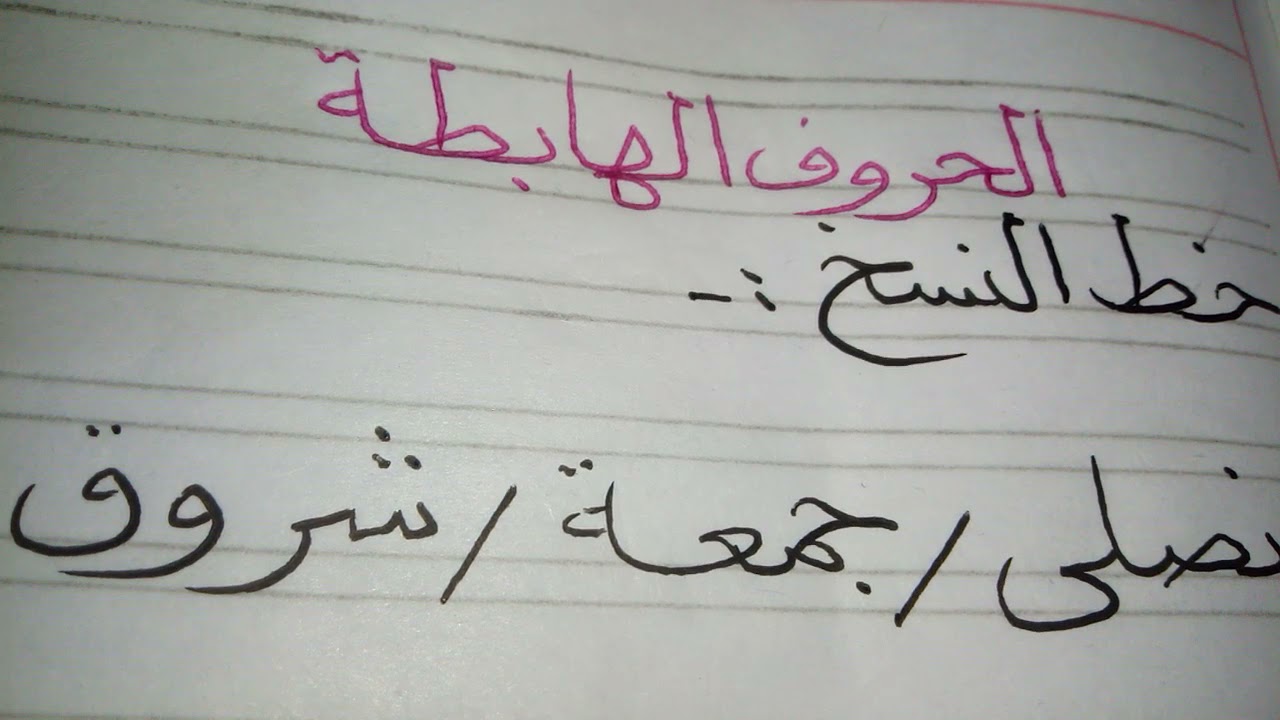 الحروف الهابطة
خط النسخ :-
نصلي / جمعة / شروق